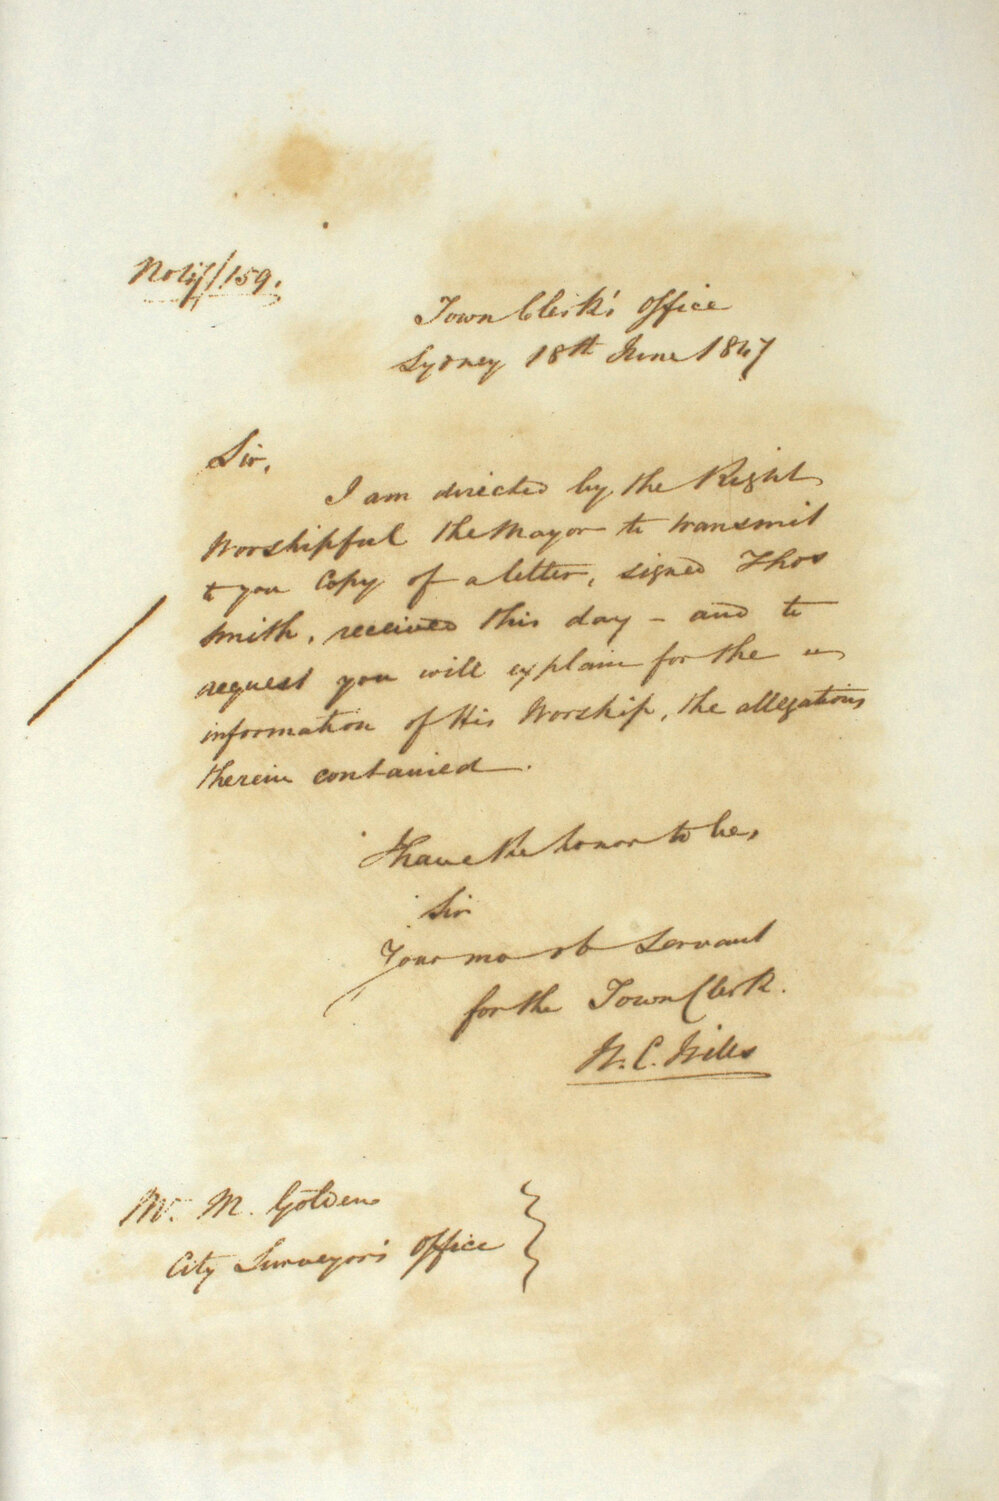 No 47/159.
Town Clerk's Office
Sydney 18th June 1847
Sir,
I am directed by the Right
Worshipful the Mayor to transmit
to you Copy of a letter, signed Thos
Smith, received this day – and to
request you will explain for the
information of His Worship, the allegations
therein contained.
I have the honor to be,
Sir
Your mo ob Servant
for the Town Clerk.
W. C. Wills
Mr. M. Golden
City Surveyor's Office